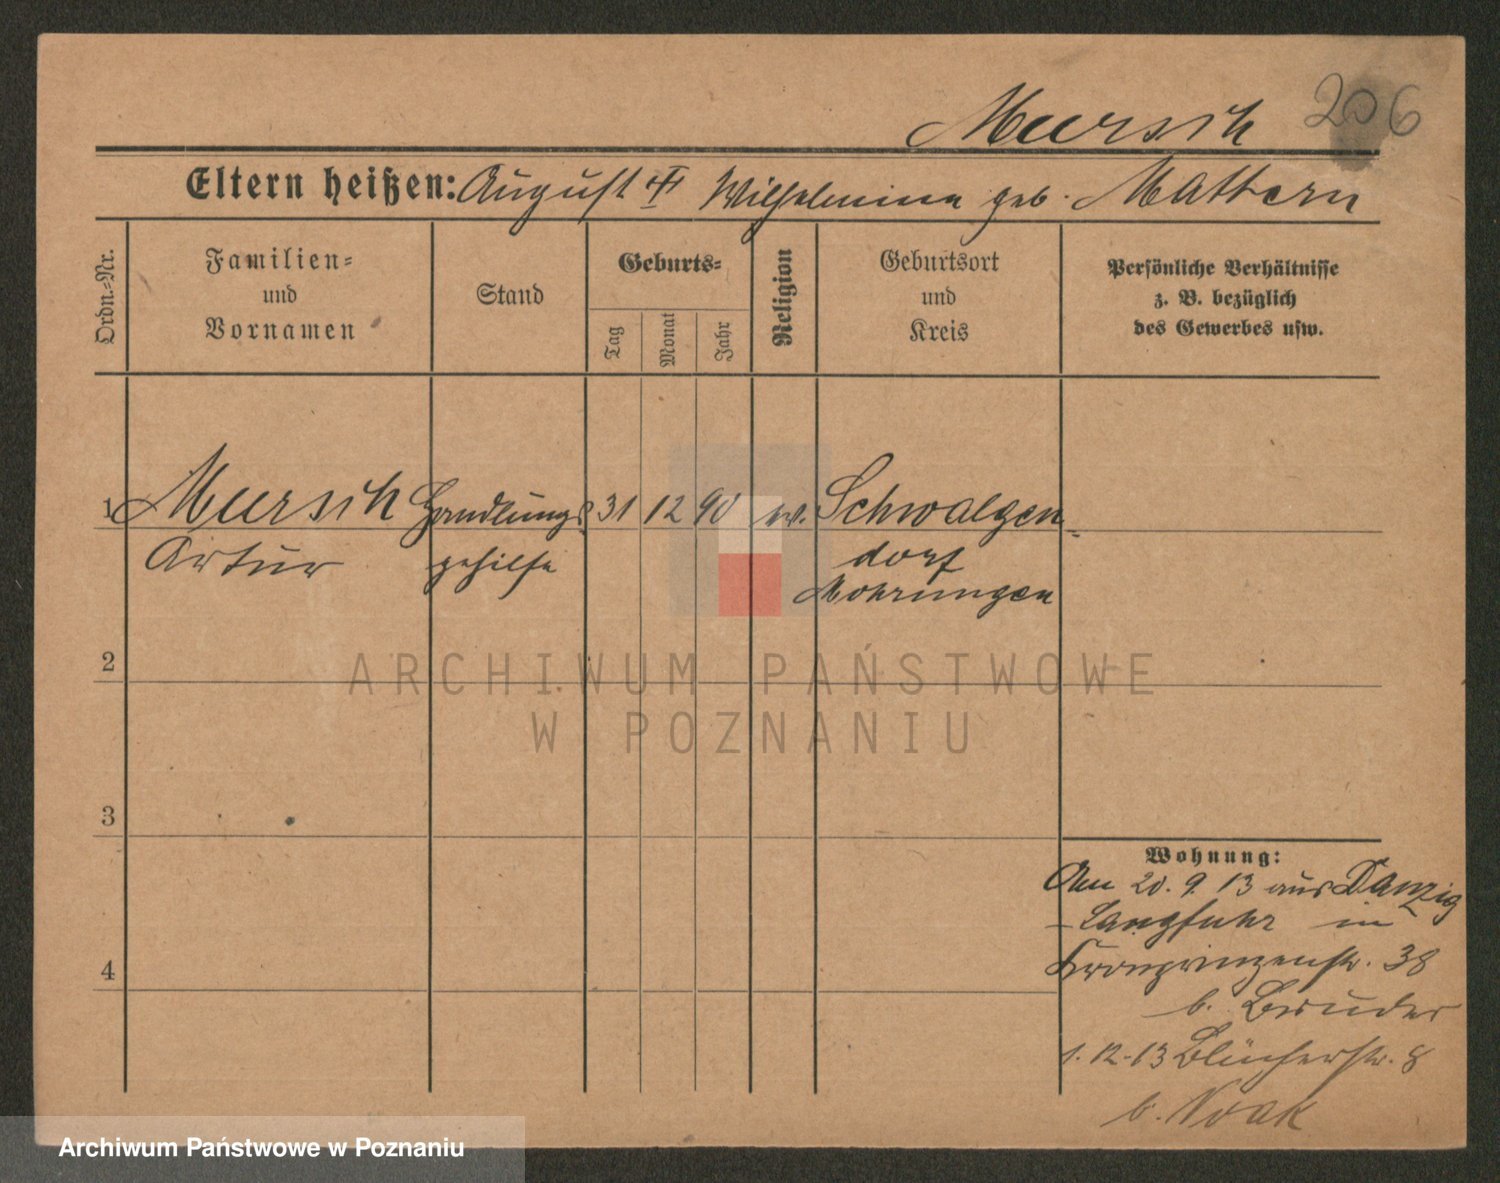 206
Mursch
Eltern heißen: August ♰ Wilhelmine geb. Mattern
Ordn.-Nr.
Familien-
und
Vornamen
Stand
Geburts-
Tag
Monat
Jahr
Religion
Geburtsort
und
Kreis
Persönliche Verhältnisse
z. B. bezüglich
des Gewerbes usw.
1 Handlungs 31 12 90 ev. Schwalgen
Artur gehilfe dorf
Mohrungen
2
3
4
Wohnung:
Am 20. 9. 13 aus Danzig
- Langfuhr in
Kronprinzenstr. 38
b. Bruder
1. 12. 13 Blücherstr. 8
b. Noak
ARCHIWUM PAŃSTWOWE
W POZNANIU
Archiwum Państwowe w Poznaniu